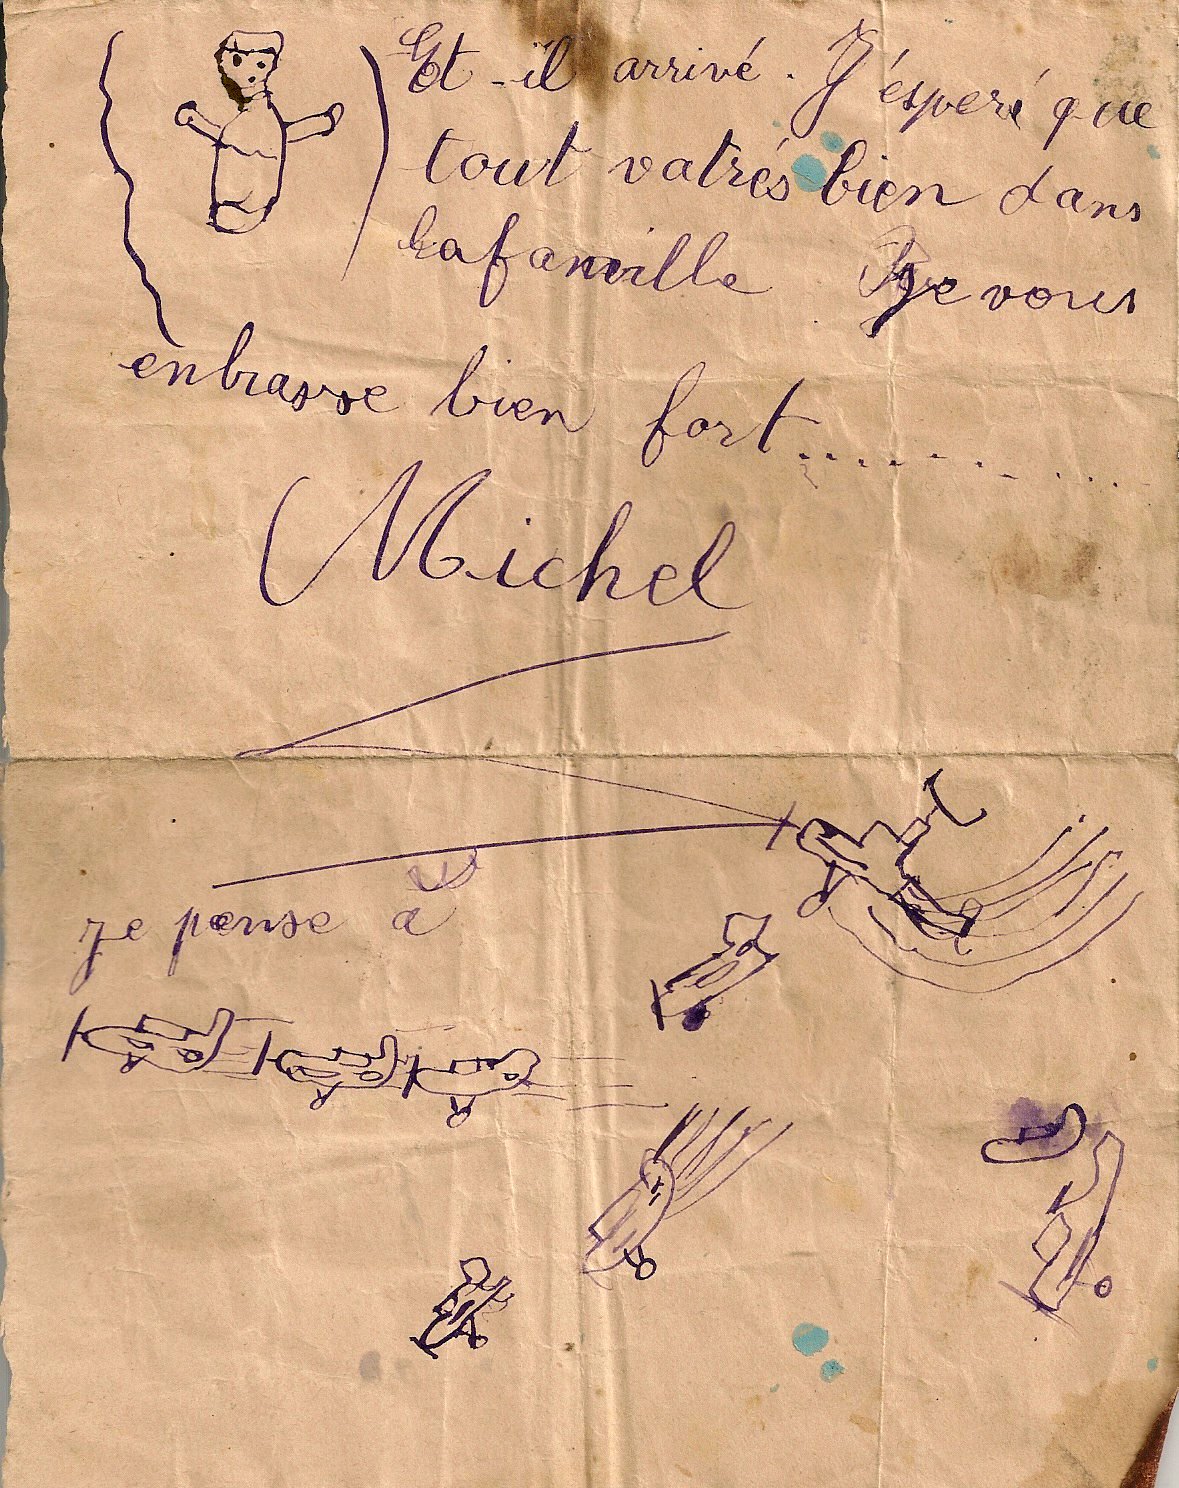 Et-il arrivé. J'ésperé que
tout vatrés bien dans
lafamille Je vous
enbrasse bien fort..............
Michel
je pense à